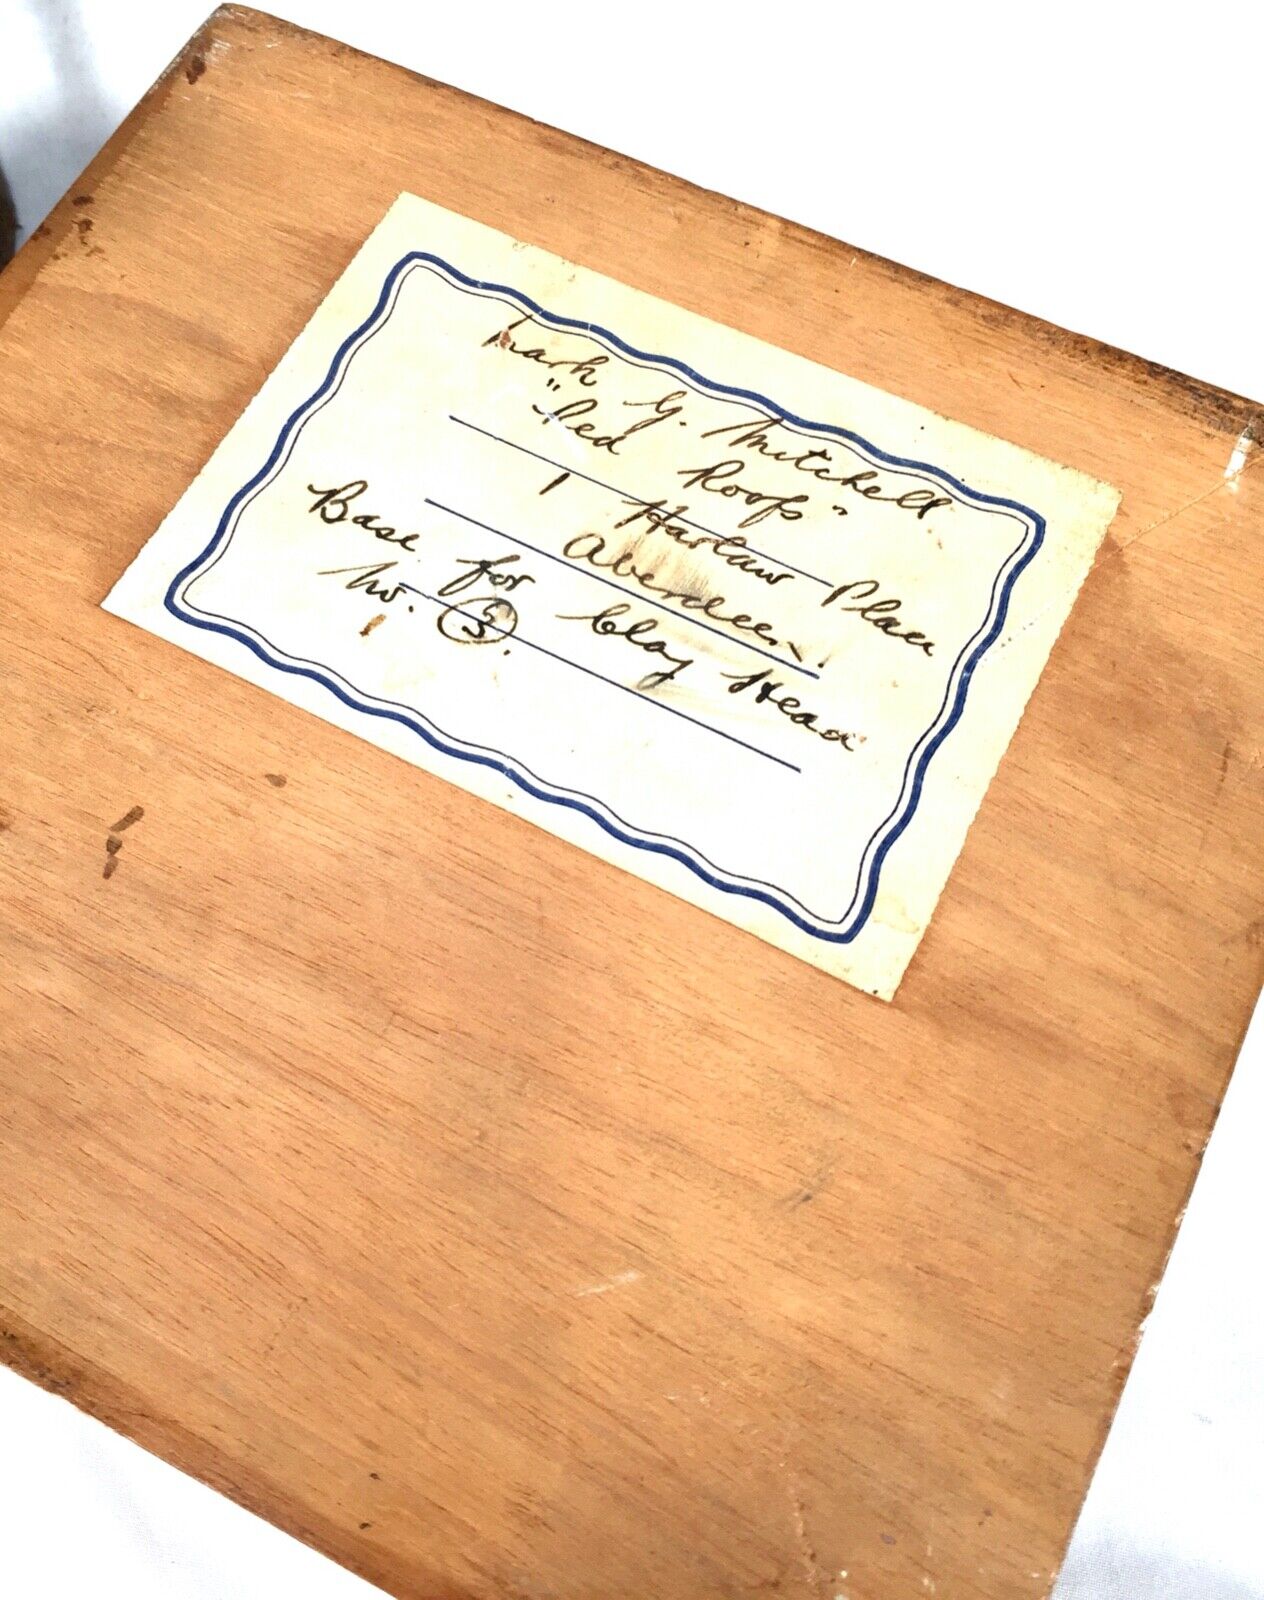 Mark G. Mitchell
"Red Roofs"
1 Harlaw Place
Aberdeen.
Base for Clay Head
No. 3.